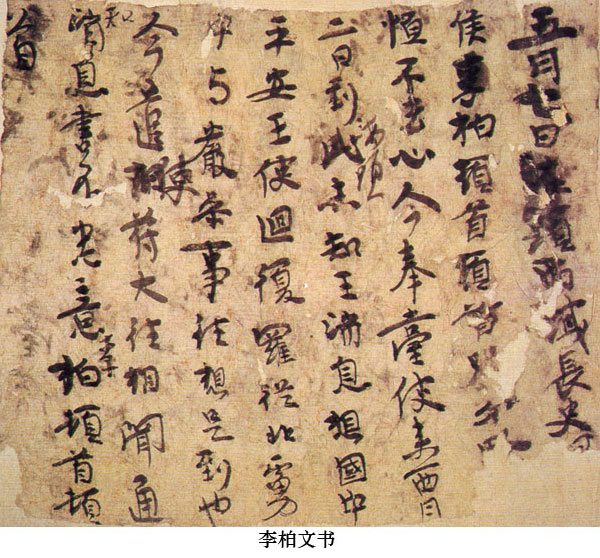 五月七日海頭西域長史
侯李柏頓首頓首別
恒不去心今奉臺使來西月
二日到此海頭未知王消息想國中
平安王使迴復羅從北虜
中與嚴參事往想是到也
今遣使符大往相聞通
知消息書不悉意李柏頓首頓
首
李柏文书